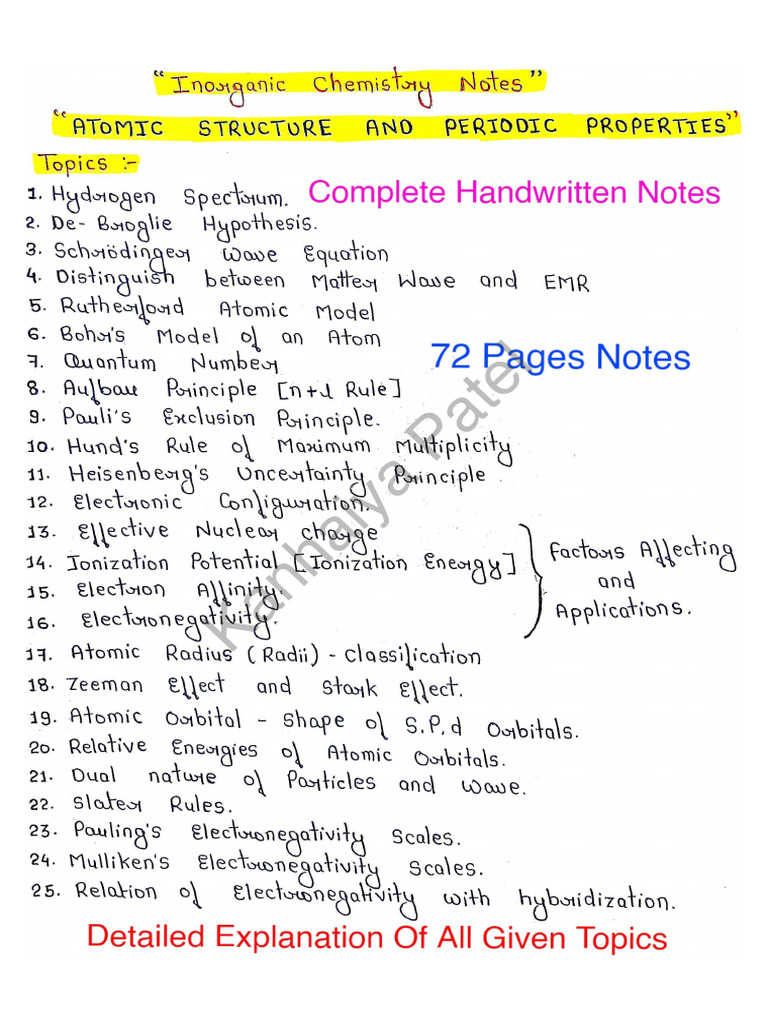 “Inorganic Chemistry Notes”
“ATOMIC STRUCTURE AND PERIODIC PROPERTIES”
Topics :-
1. Hydrogen Spectrum. Complete Handwritten Notes
2. De-Broglie Hypothesis.
3. Schrödinger Wave Equation
4. Distinguish between Matter Wave and EMR
5. Rutherford Atomic Model
6. Bohr's Model of an Atom
72 Pages Notes
7. Quantum Number
8. Aufbau Principle [n+l Rule]
9. Pauli's Exclusion Principle.
10. Hund's Rule of Maximum Multiplicity
11. Heisenberg's Uncertainty Principle.
12. Electronic Configuration.
13. Effective Nuclear charge
14. Ionization Potential [Ionization Energy]
15. Electron Affinity.
16. Electronegativity.
Factors Affecting
and
Applications.
17. Atomic Radius (Radii) - Classification
18. Zeeman Effect and Stark Effect.
19. Atomic Orbital - Shape of S.P.d Orbitals.
20. Relative Energies of Atomic Orbitals.
21. Dual nature of Particles and Wave.
22. Slater Rules.
23. Pauling's Electronegativity Scales.
24. Mulliken's Electronegativity Scales.
25. Relation of Electronegativity with hybridization.
Detailed Explanation Of All Given Topics
Kanhaiya Patel